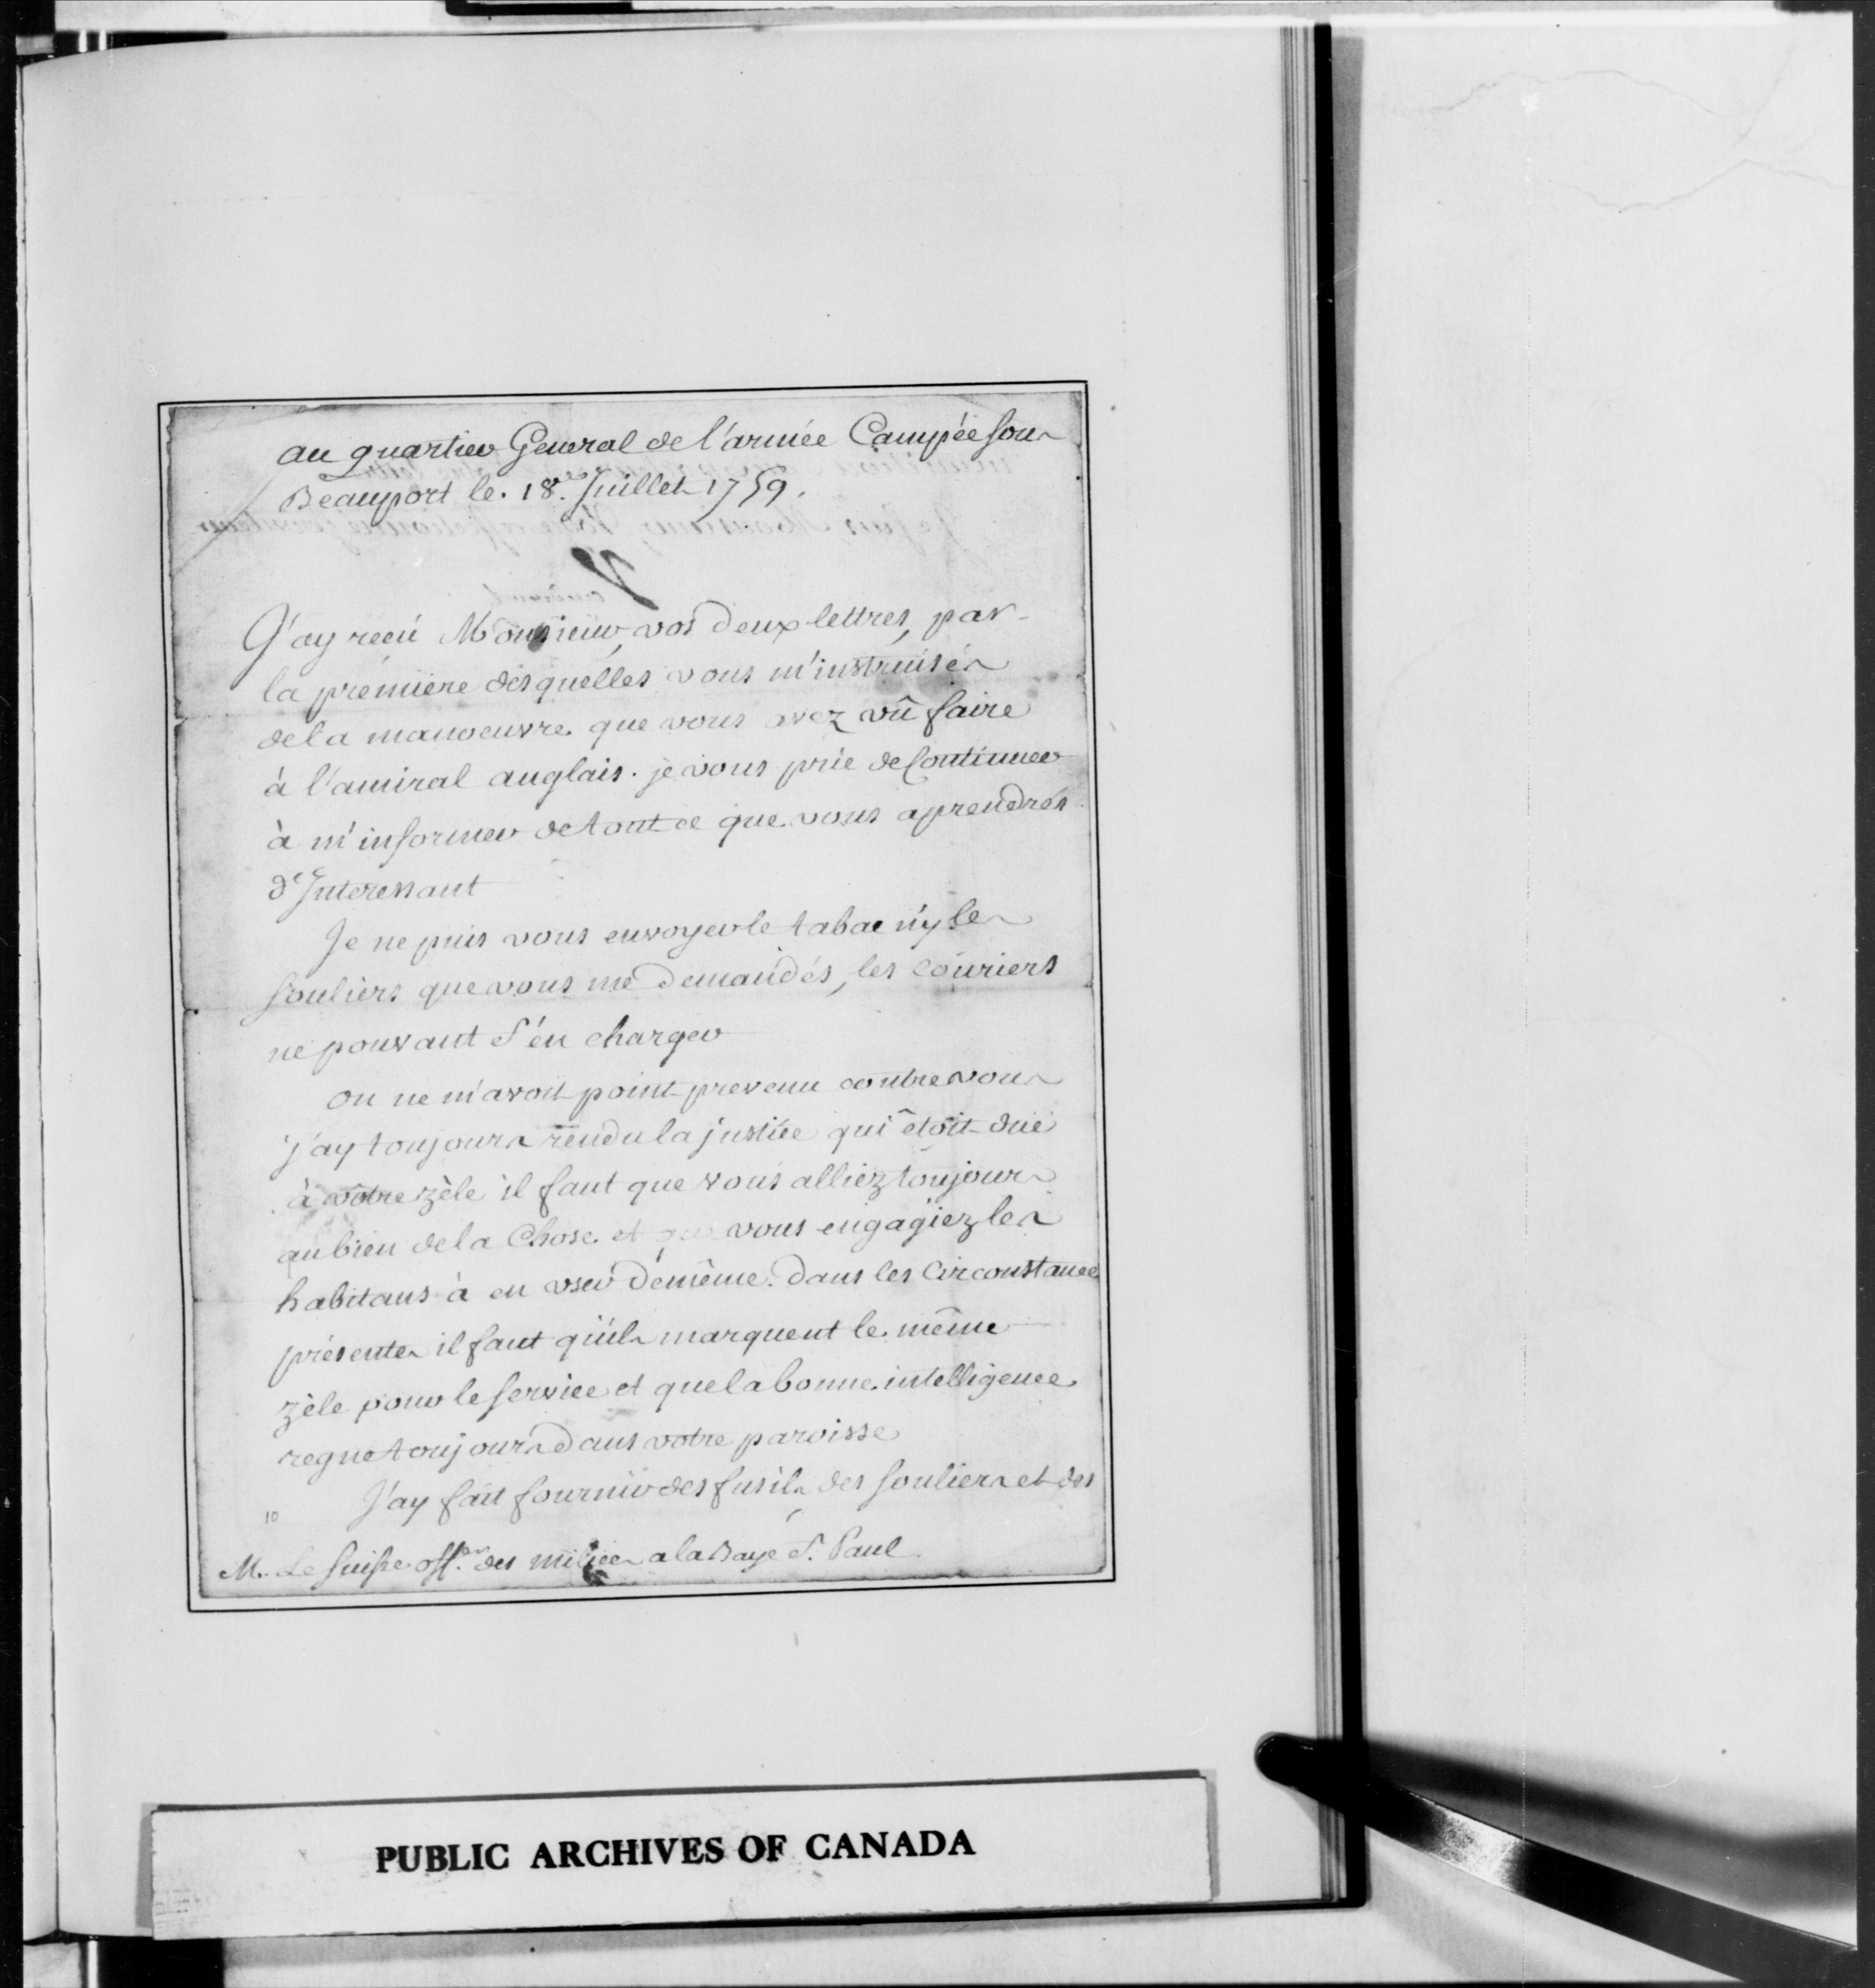 au quartier General de l'armée Campée sous
Beauport le. 18.e Juillet 1759.
J'ay reçu Monsieur, vos deux lettres, par
la premiere desquelles vous m'instruisés
de la manoeuvre que vous avez vû faire
à l'amiral anglais. je vous prie de Continuer
à m'informer de tout ce que vous aprendrés
d'Interessant
Je ne puis vous envoyer le tabac ny les
souliers que vous me demandés, les couriers
ne pouvant s'en charger
on ne m'avoit point prevenu contre vous
j'ay toujours rendu la justice qui êtoit due
à vôtre zèle il faut que vous alliez toujours
au bien de la Chose et que vous engagiez les
habitans à en user de même. dans les Circonstances
présentes il faut qu'ils marquent le même
zèle pour le service et que la bonne intelligence
regne toujours dans votre paroisse
J'ay fait fournir des fusils des souliers et des
10
M. Le Suisse off.er des milices a la Baye S. Paul
PUBLIC ARCHIVES OF CANADA